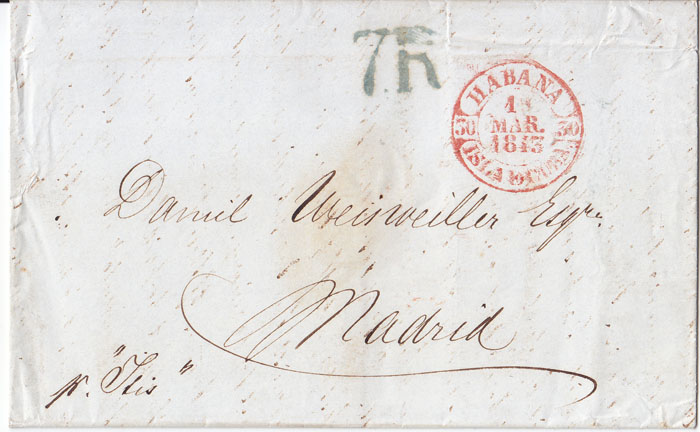 7R
HABANA
1
MAR.
1843
30 30
ISLA DE CUBA
Daniel Weisweiller Esqre.
Madrid
pr. "Isis"